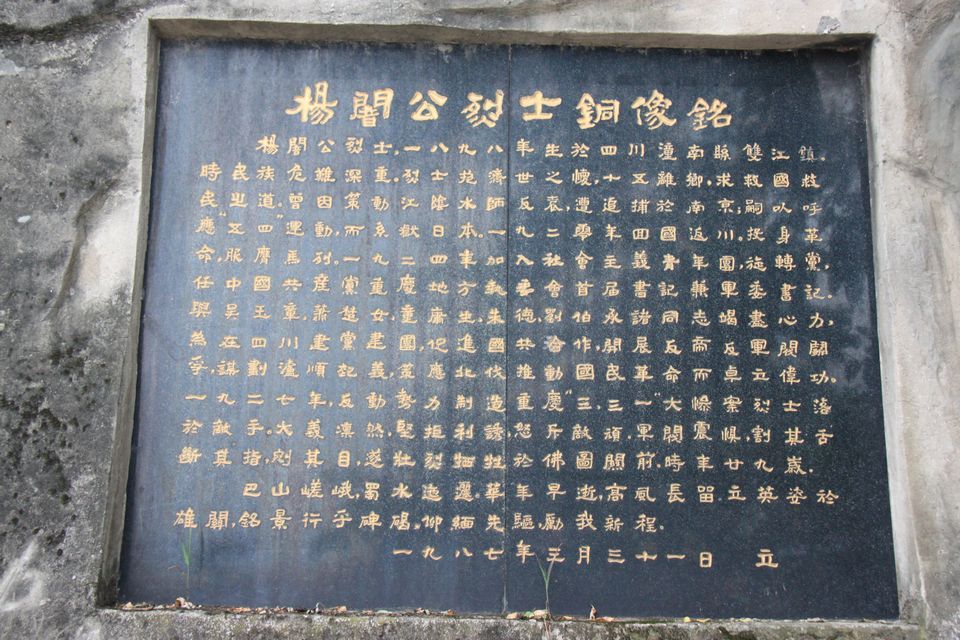 楊闇公烈士銅像銘
楊闇公烈士,一八九八年生於四川潼南縣雙江鎮。
時民族危難深重,烈士抱濟世之懷,十五離鄉,求救國拯
民之道。曾因策動江陰水師反袁,遭追捕於南京;嗣以呼
應"五四"運動而系獄日本。一九二零年回國返川,投身革
命,服膺馬列,一九二四加入社會主義青年團,旋轉黨,
任中國共產黨重慶地方執委會首屆書記兼軍委書記。
與吳玉章、蕭楚女、童庸生、朱德、劉伯承諸同志竭盡心力,
為在四川建黨建團,促進國共合作,開展反帝反軍閥鬥
爭,謀劃瀘順起義,策應北伐,推動國民革命而卓立偉功。
一九二七年,反動勢力制造重慶"三三一"大慘案,烈士落
於敵手。大義凜然,堅拒利誘,怒斥敵頑,軍閥震懼,割其舌
斷其指,剜其目,遂壯烈犧牲於佛圖關前,時年廿九歲.
巴山嵯峨,蜀水逶邐。華年早逝,高風長留.立英姿於
雄關,銘景行乎碑碣。仰緬先驅,勵我新程.
一九八七年三月三十一日 立